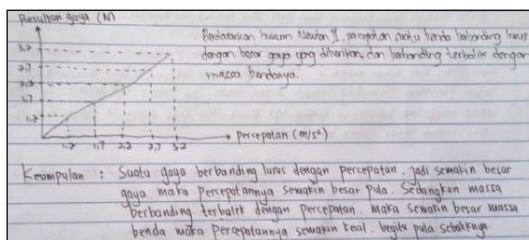 Resultan gaya (N)
3,2
2,7
2,2
1,7
1,2
1,2 1,7 2,2 2,7 3,2
percepatan (m/s²)
Berdasarkan hukum Newton II, percepatan suatu benda berbanding lurus
dengan besar gaya yang diberikan, dan berbanding terbalik dengan
massa bendanya.
Kesimpulan : Suatu gaya berbanding lurus dengan percepatan. jadi semakin besar
gaya maka percepatannya semakin besar pula. Sedangkan massa
berbanding terbalik dengan percepatan. maka semakin besar massa
benda maka percepatannya semakin kecil. begitu pula sebaliknya.